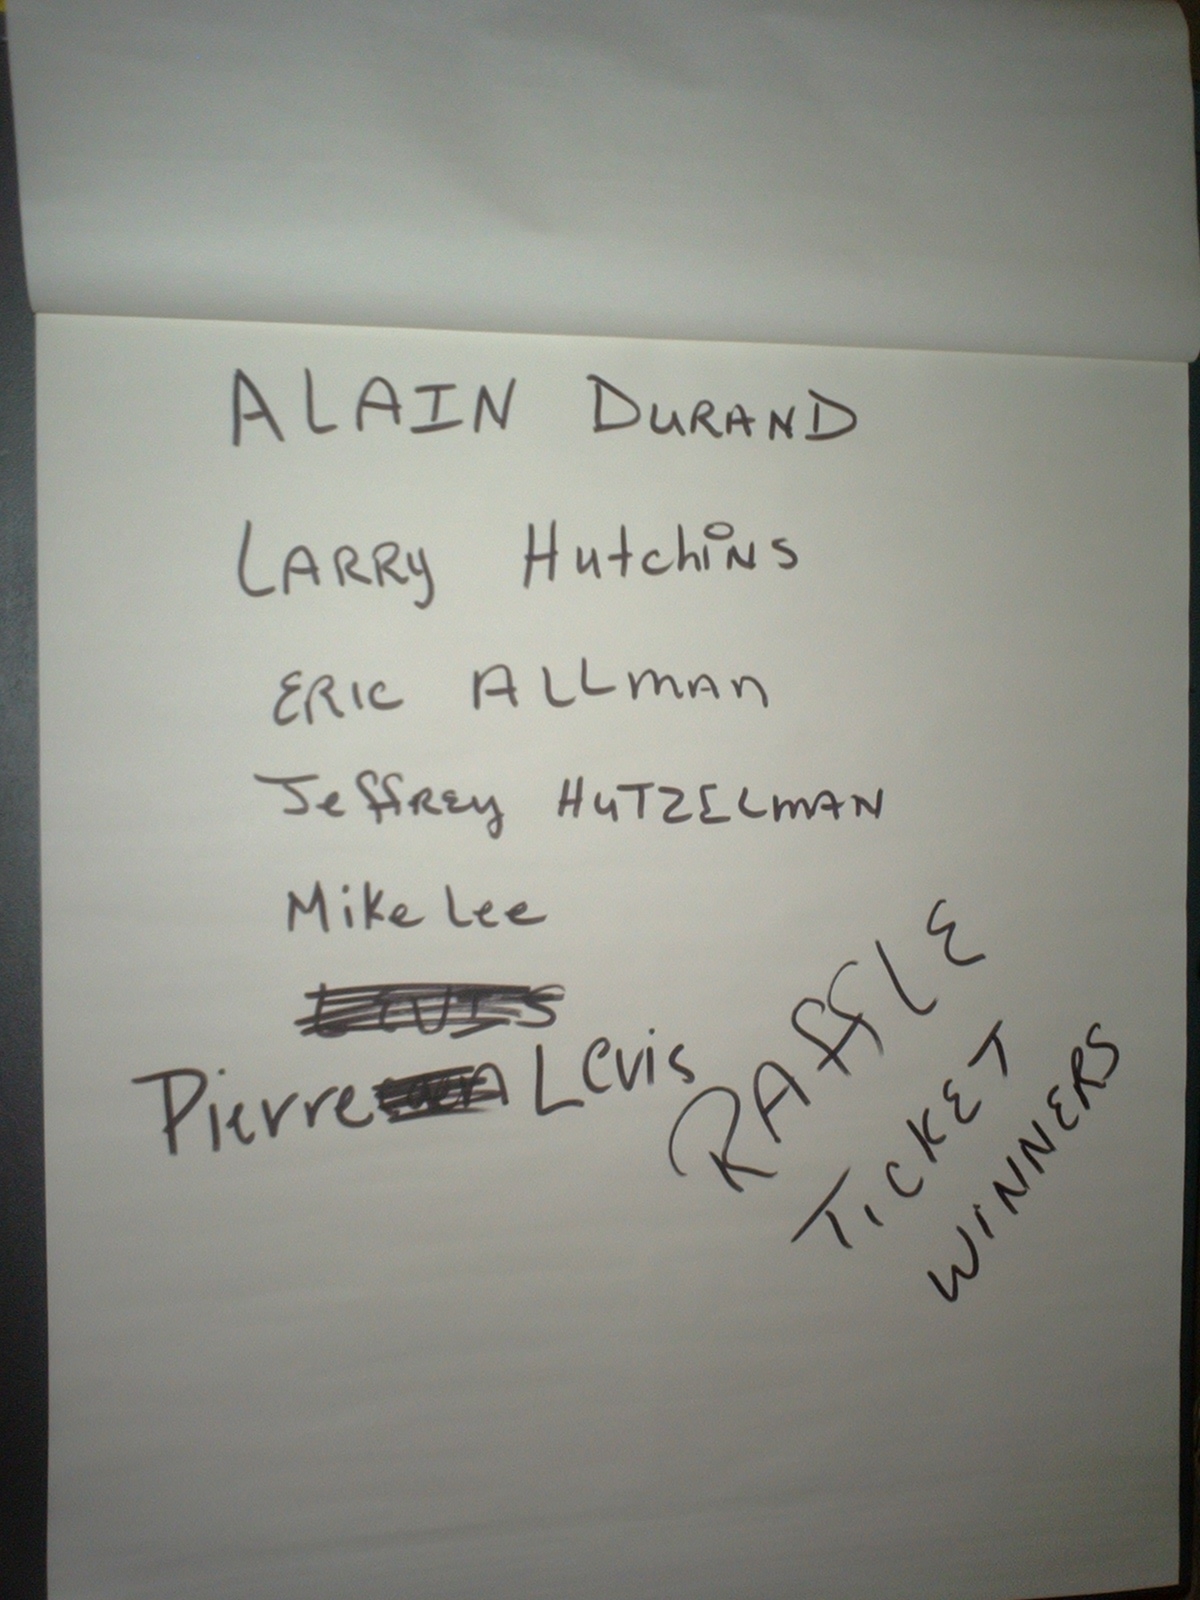 ALAIN DURAND
LARRY HutchiNS
ERIC ALLMAN
JeffREY HUTZELMAN
Mike Lee
Pierre Levis
RAffLE
TICKET
WINNERS